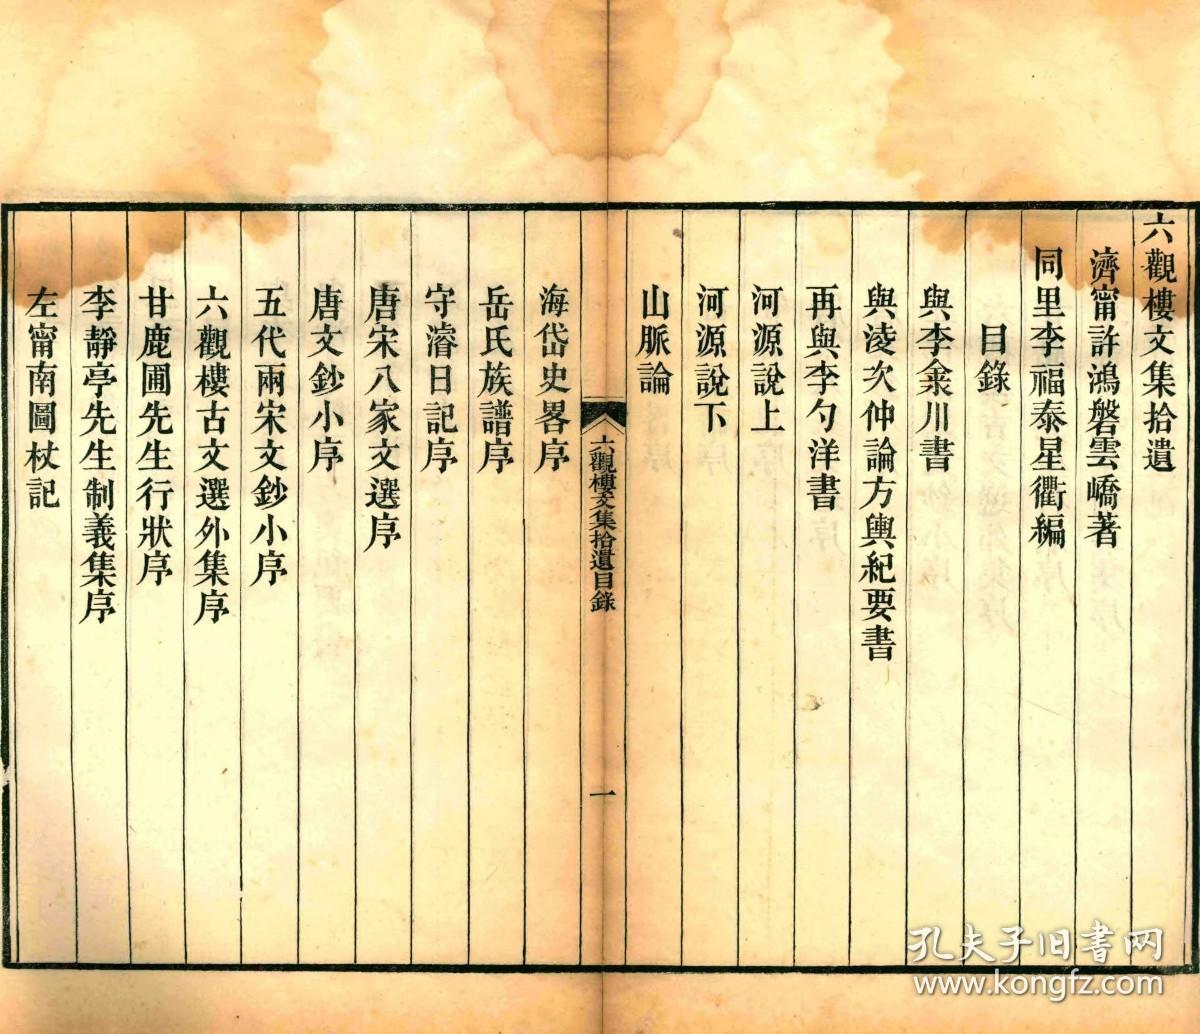 六觀樓文集拾遺
濟甯許鴻磐雲嶠著
同里李福泰星衢編
目錄
與李氽川書
與淩次仲論方輿紀要書
再與李勺洋書
河源說上
河源說下
山脈論
六觀樓文集拾遺目錄
一
海岱史畧序
岳氏族譜序
守濬日記序
唐宋八家文選序
唐文鈔小序
五代兩宋文鈔小序
六觀樓古文選外集序
甘鹿圃先生行狀序
李靜亭先生制義集序
左甯南圖杖記
孔夫子旧书网
www.kongfz.com